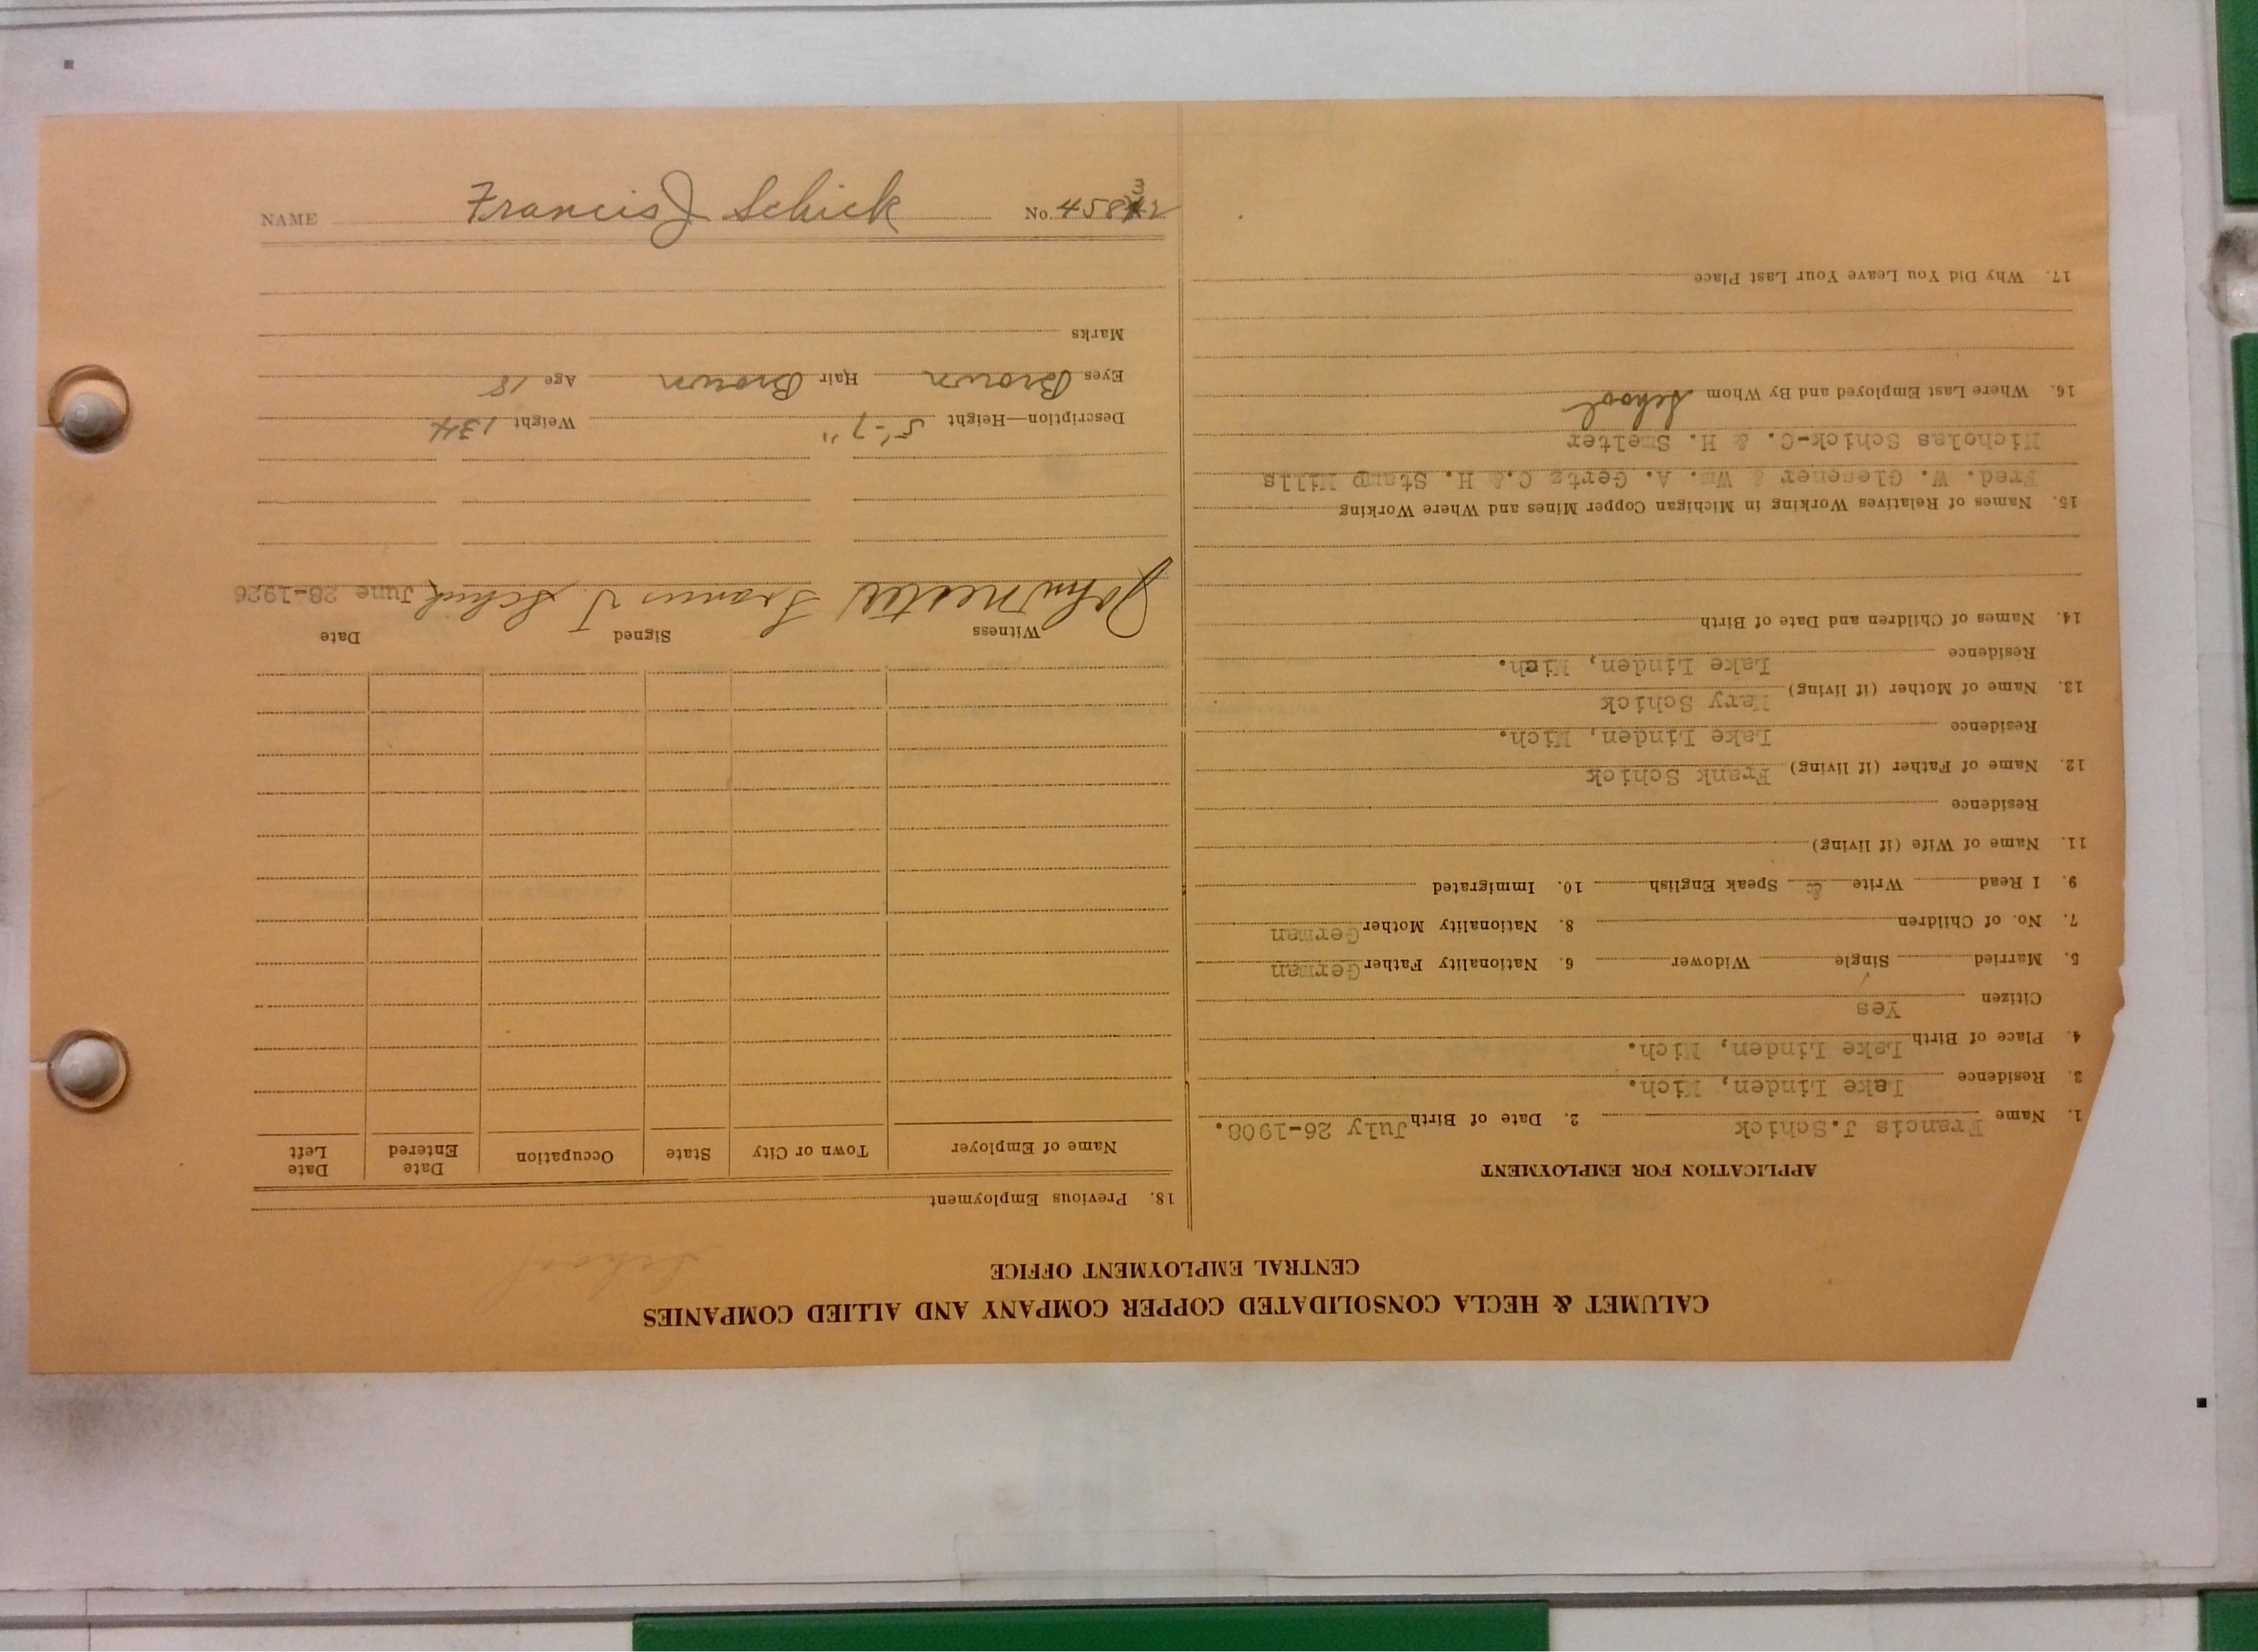 NAME Francis J Schick No. 45832
CALUMET & HECLA CONSOLIDATED COPPER COMPANY AND ALLIED COMPANIES
CENTRAL EMPLOYMENT OFFICE
School
APPLICATION FOR EMPLOYMENT
1. Name Francis J.Schick 2. Date of Birth July 26-1908.
3. Residence Lake Linden, Mich.
4. Place of Birth Lake Linden, Mich.
Citizen Yes
5. Married Single Widower 6. Nationality Father German
7. No. of Children 8. Nationality Mother German
9. I Read Write & Speak English 10. Immigrated
11. Name of Wife (if living)
Residence
12. Name of Father (if living) Frank Schick
Residence Lake Linden, Mich.
13. Name of Mother (if living) Mary Schick
Residence Lake Linden, Mich.
14. Names of Children and Date of Birth
15. Names of Relatives Working in Michigan Copper Mines and Where Working
Fred. W. Glesener & Wm. A. Gertz C.& H. Stamp Mills
Nicholas Schick-C. & H. Smelter
16. Where Last Employed and By Whom School
17. Why Did You Leave Your Last Place
18. Previous Employment
Name of Employer Town or City State Occupation Date Entered Date Left
Witness Signed Date
John Mester Francis J. Schick June 28-1926
Description—Height 5'-7" Weight 134
Eyes Brown Hair Brown Age 18
Marks